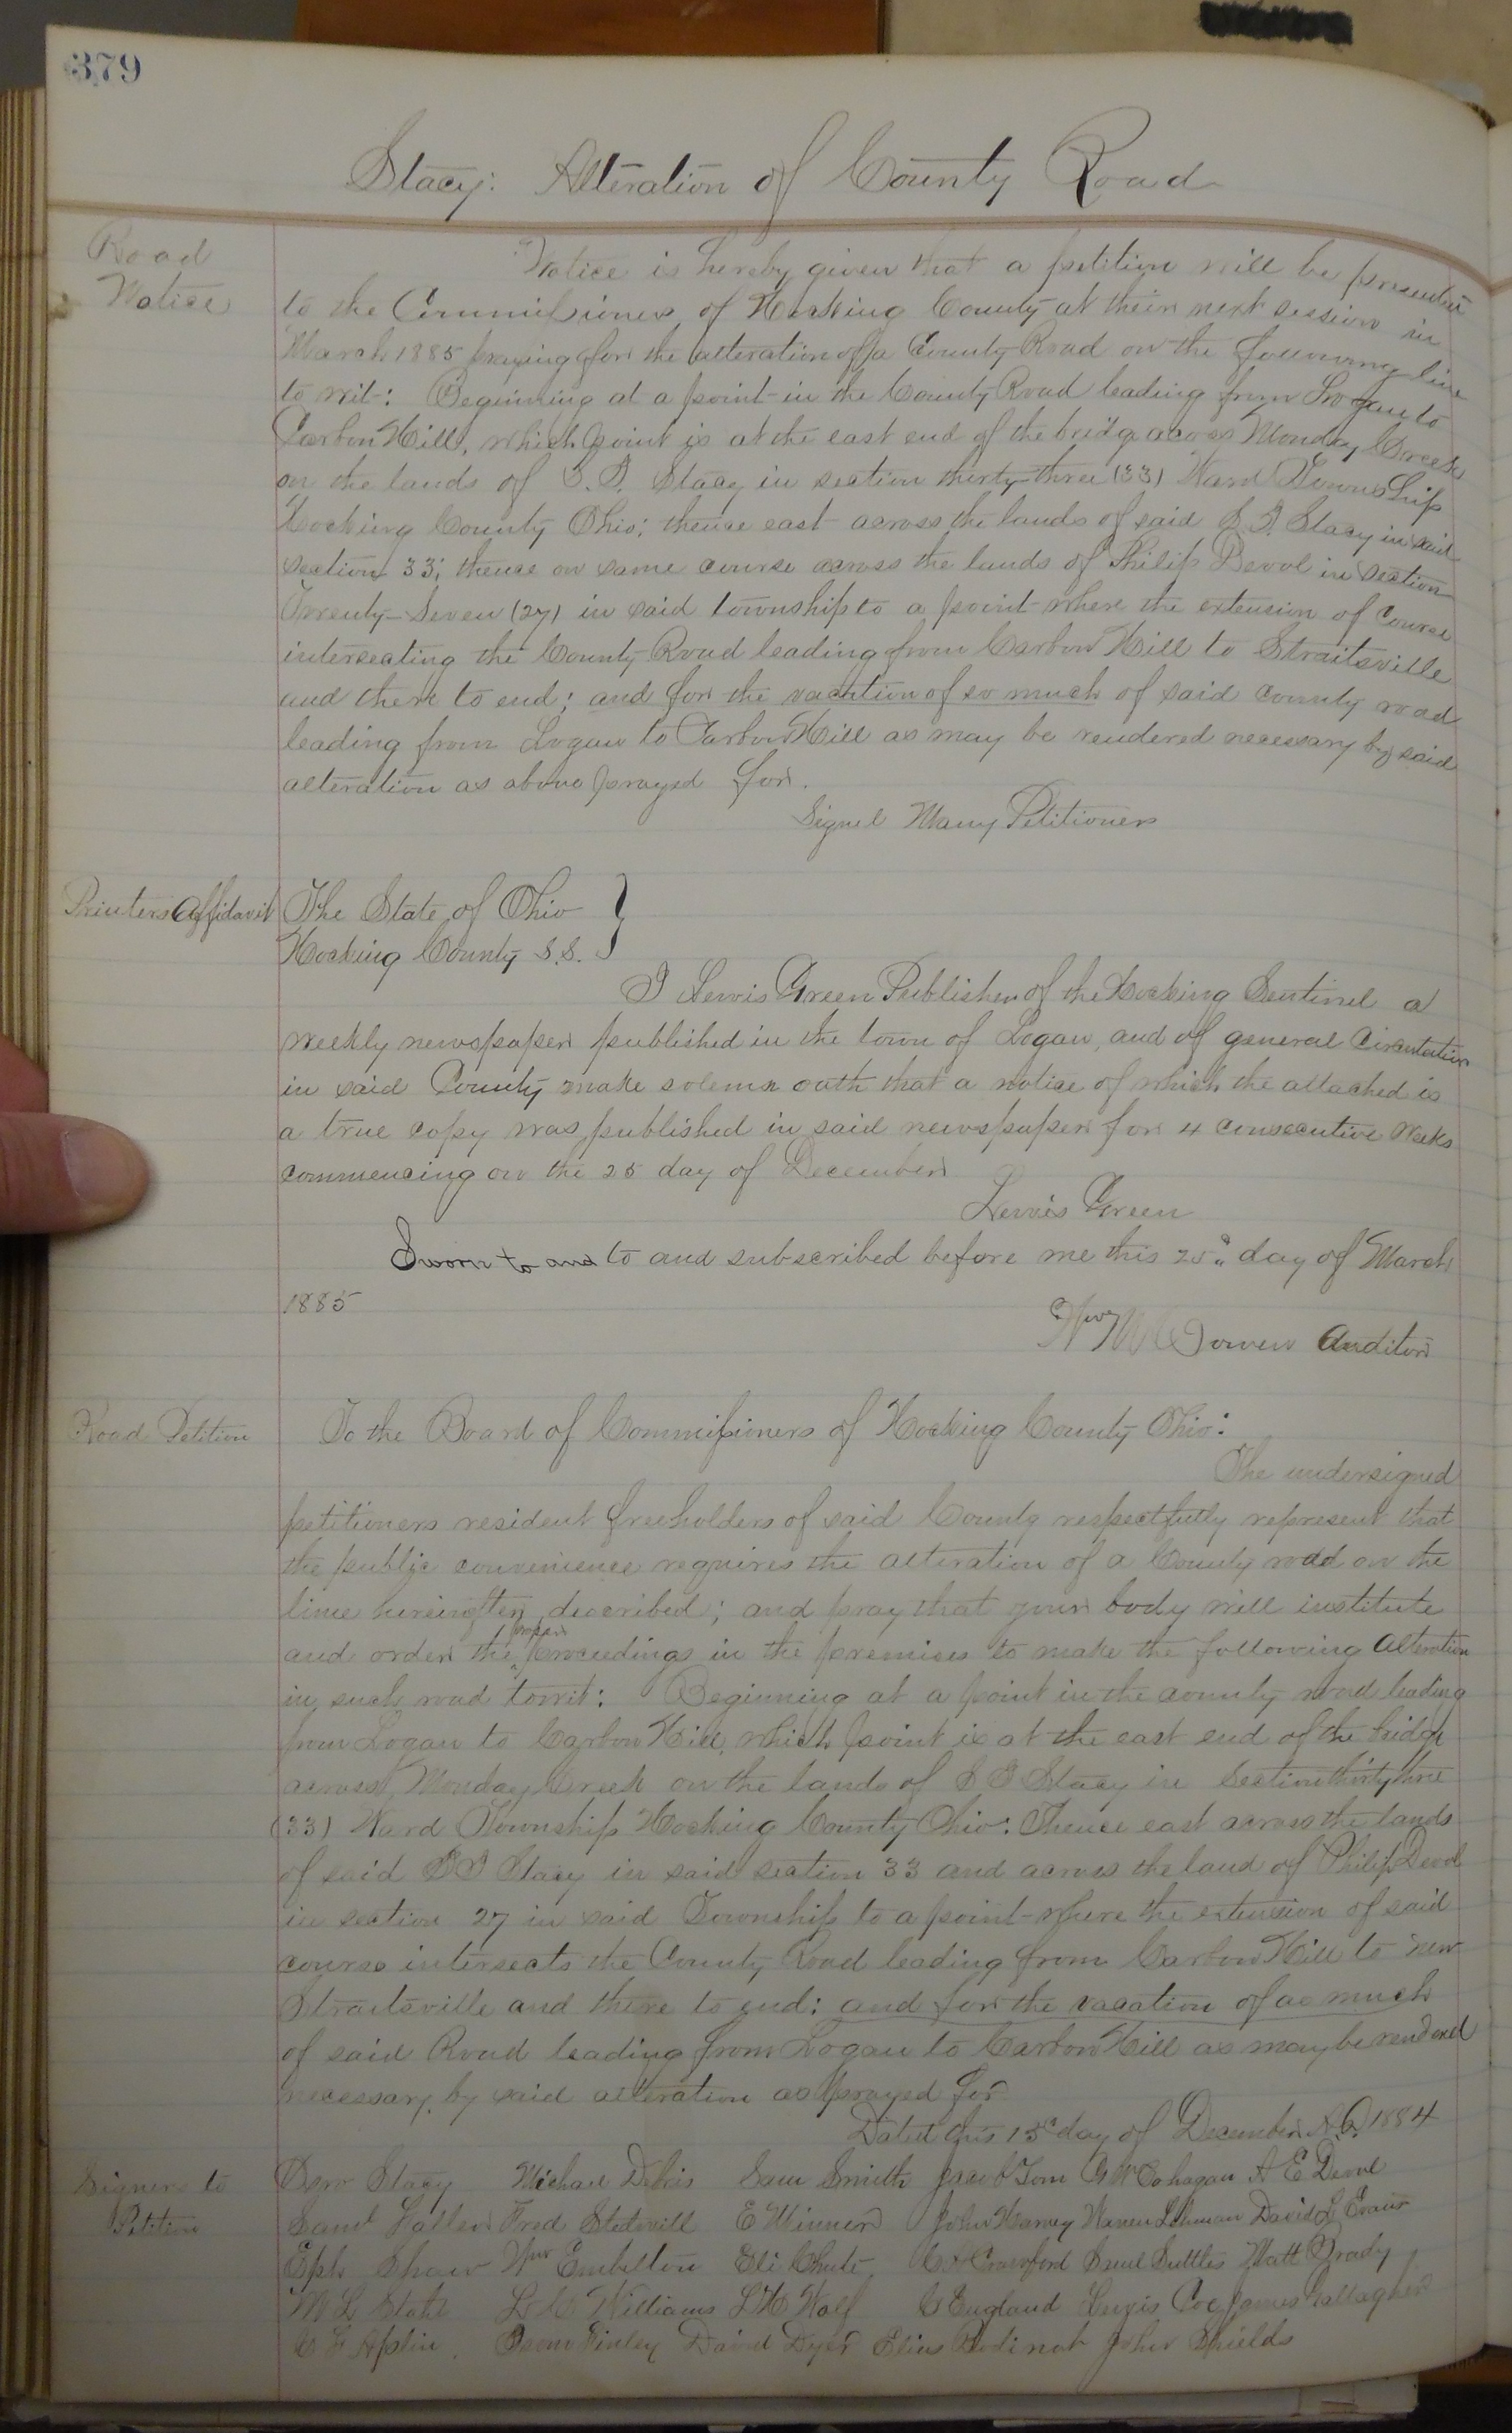 379
Stacy: Alteration of County Road
Road
Notice
Notice is hereby given that a petition will be presented
to the Commissioners of Hocking County at their next session in
March 1885 praying for the alteration of a County Road on the following line
to wit: Beginning at a point in the County Road leading from Logan to
Carbon Hill, which point is at the east end of the bridge across Monday Creek
on the lands of Stacy in section thirty three (33) Ward Township
Hocking County Ohio; thence east across the lands of said Stacy in said
section 33; thence on same course across the lands of Philip Devol in section
Twenty-Seven (27) in said township to a point where the extension of course
interseating the County Road leading from Carbon Hill to Straitsville
and there to end; and for the vacation of so much of said county road
leading from Logan to Carbon Hill as may be rendered necessary by said
alteration as above prayed for.
Signed Many Petitioners
Printers Affidavit
The State of Ohio }
Hocking County S.S.
I Lewis Green Publisher of the Hocking Sentinel a
weekly newspaper published in the town of Logan, and of general Circulation
in said County make solemn oath that a notice of which the attached is
a true copy was published in said newspaper for 4 consecutive weeks
commencing on the 25 day of December
Lewis Green
Sworn to and to and subscribed before me this 25" day of March
1885
Wm M Bowen Auditor
Road Petition
To the Board of Commissioners of Hocking County Ohio:
The undersigned
petitioners resident freeholders of said County respectfully represent that
the public convenience requires the alteration of a County road on the
line hereinafter described; and pray that your body will institute
and order the proper proceedings in the premises to make the following Alteration
in such road towit: Beginning at a point in the county road leading
from Logan to Carbon Hill, which point is at the east end of the bridge
across Monday Creek on the lands of Stacy in Section thirty three
(33) Ward Township Hocking County Ohio: Thence east across the lands
of said Stacy in said section 33 and across the land of Philip Devol
in section 27 in said Township to a point where the extension of said
course intersects the County Road leading from Carbon Hill to New
Straitsville and there to end: and for the vacation of as much
of said Road leading from Logan to Carbon Hill as may be rendered
necessary by said alteration as prayed for
Dated this 13 day of December A.D. 1884
Signers to
Petition
Stacy Michael Sam Smith Jacob Tom A E Devol
Saml Fred E Winner John Harvey Warren Lehman David L Evans
Eph Shaw Wm Embelton Eli Chute Crawford Saml Suttles Matt Brady
M L L C Williams L H Wolf C England Lewis Coe James Gallagher
Finley David Dyer Elias John Shields